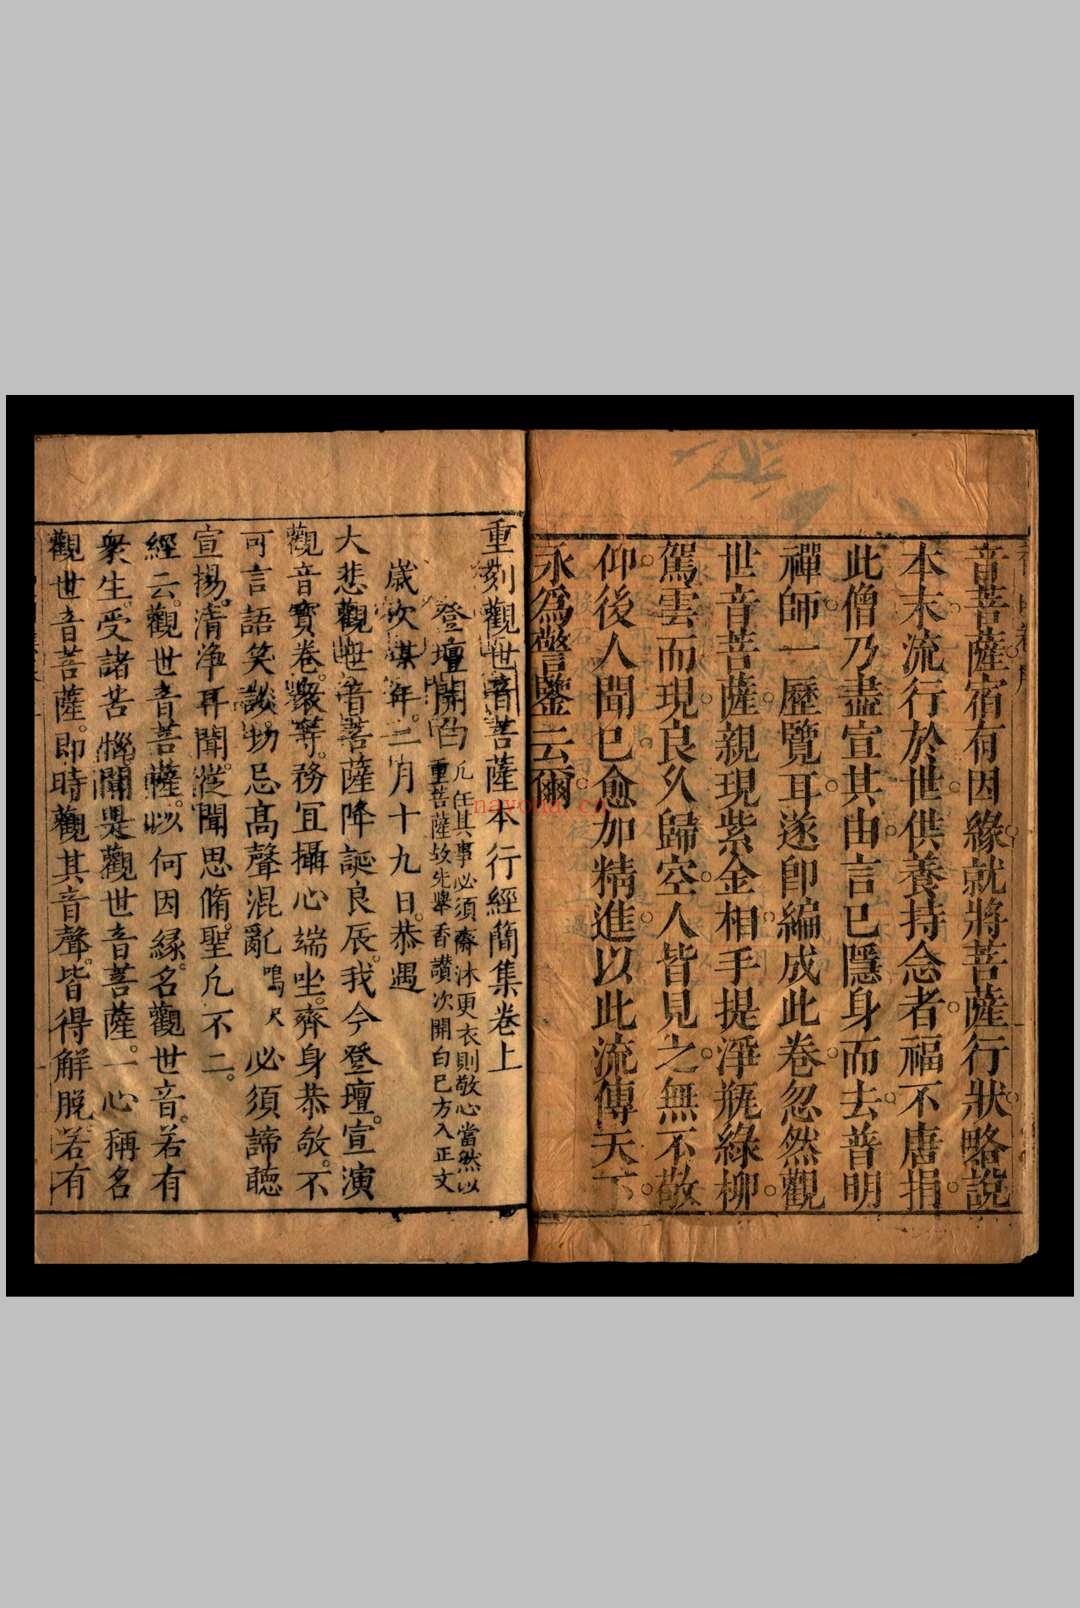 音菩薩宿有因緣就將菩薩行狀略說
本末流行於世供養持念者福不唐捐
此僧乃盡宣其由言已隱身而去普明
禪師一歷覽耳遂卽編成此卷忽然觀
世音菩薩親現紫金相手提淨瓶綠柳
駕雲而現良久歸空人皆見之無不敬
仰後人聞已愈加精進以此流傳天下
永爲警鑒云爾
重刻觀世音菩薩本行經簡集卷上
登壇開白 凡在其事必須齋沐更衣則敬心當然以
重菩薩故先舉香讚次開白已方入正文
歲次某年二月十九日恭遇
大悲觀世音菩薩降誕良辰我今登壇宣演
觀音寶卷衆等務宜攝心端坐齊身恭敬不
可言語笑談切忌高聲混亂鳴尺必須諦聽
宣揚清淨耳聞從聞思脩聖凡不二
經云觀世音菩薩以何因緣名觀世音若有
衆生受諸苦惱聞是觀世音菩薩一心稱名
觀世音菩薩即時觀其音聲皆得解脫若有
nayona.cn